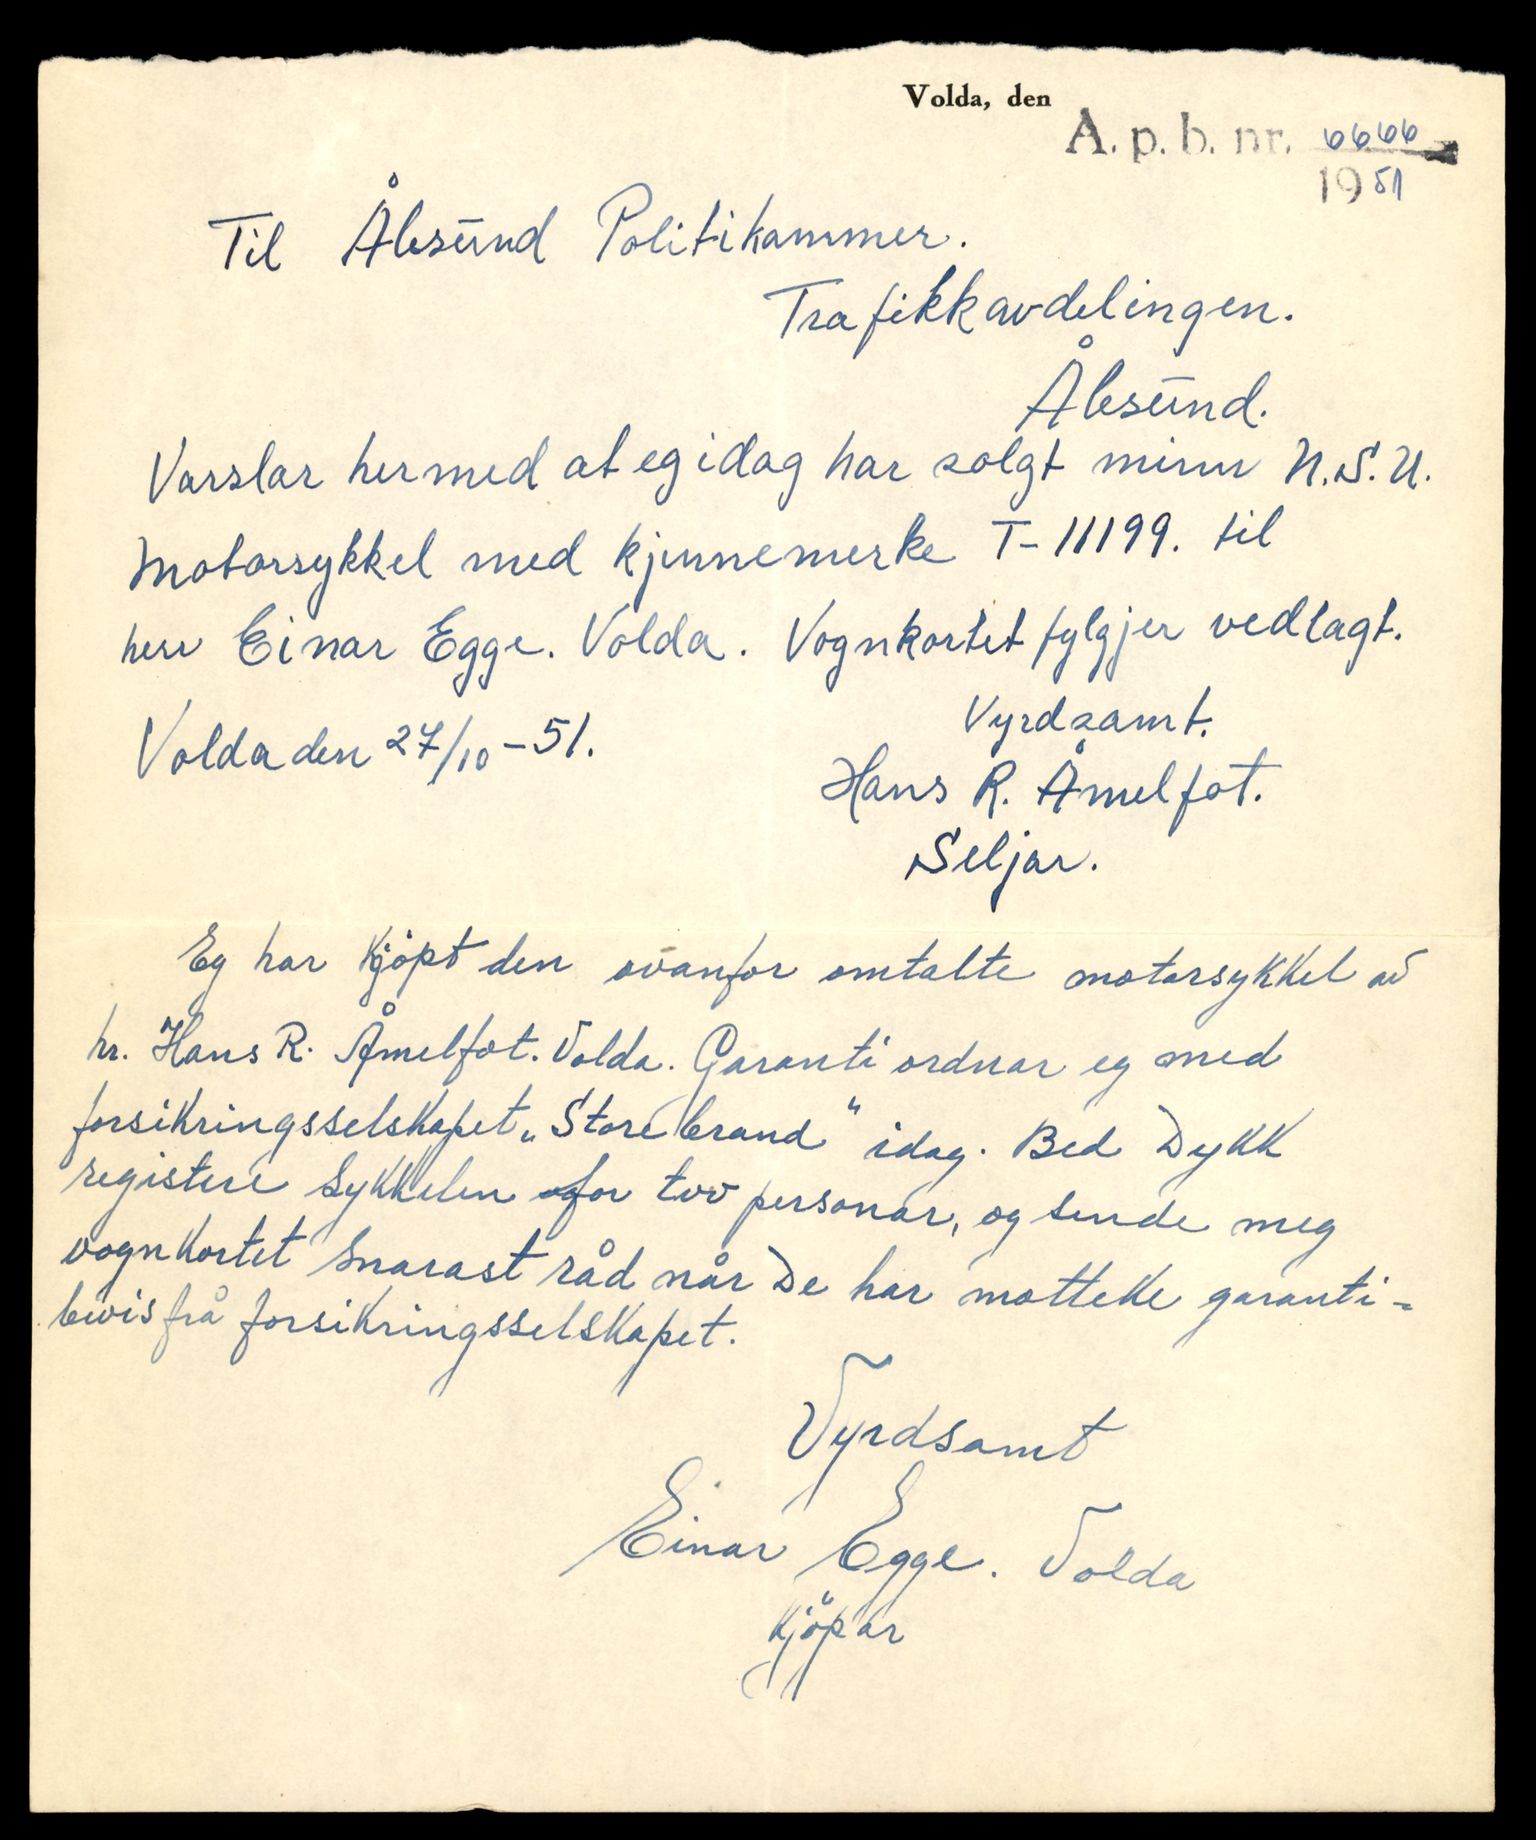 Volda, den
A. p. b. nr. 6666
1951
Til Ålesund Politikammer.
Trafikkavdelingen.
Ålesund.
Varslar hermed at eg idag har solgt minn N.S.U.
Motorsykkel med kjennemerke T-11199. til
herr Einar Egge. Volda. Vognkortet fylgjer vedlagt.
Volda den 27/10-51. Vyrdsamt.
Hans R. Åmelfot.
Seljar.
Eg har kjöpt den ovanfor omtalte motorsykkel av
hr. Hans R. Åmelfot. Volda. Garanti ordnar eg med
forsikringsselskapet „Storebrand" idag. Bed Dykk
registere sykkelen for tvo personar, og sende meg
vognkortet snarast råd når De har motteke garanti-
bevis frå forsikringsselskapet.
Vyrdsamt
Einar Egge. Volda
Kjöpar